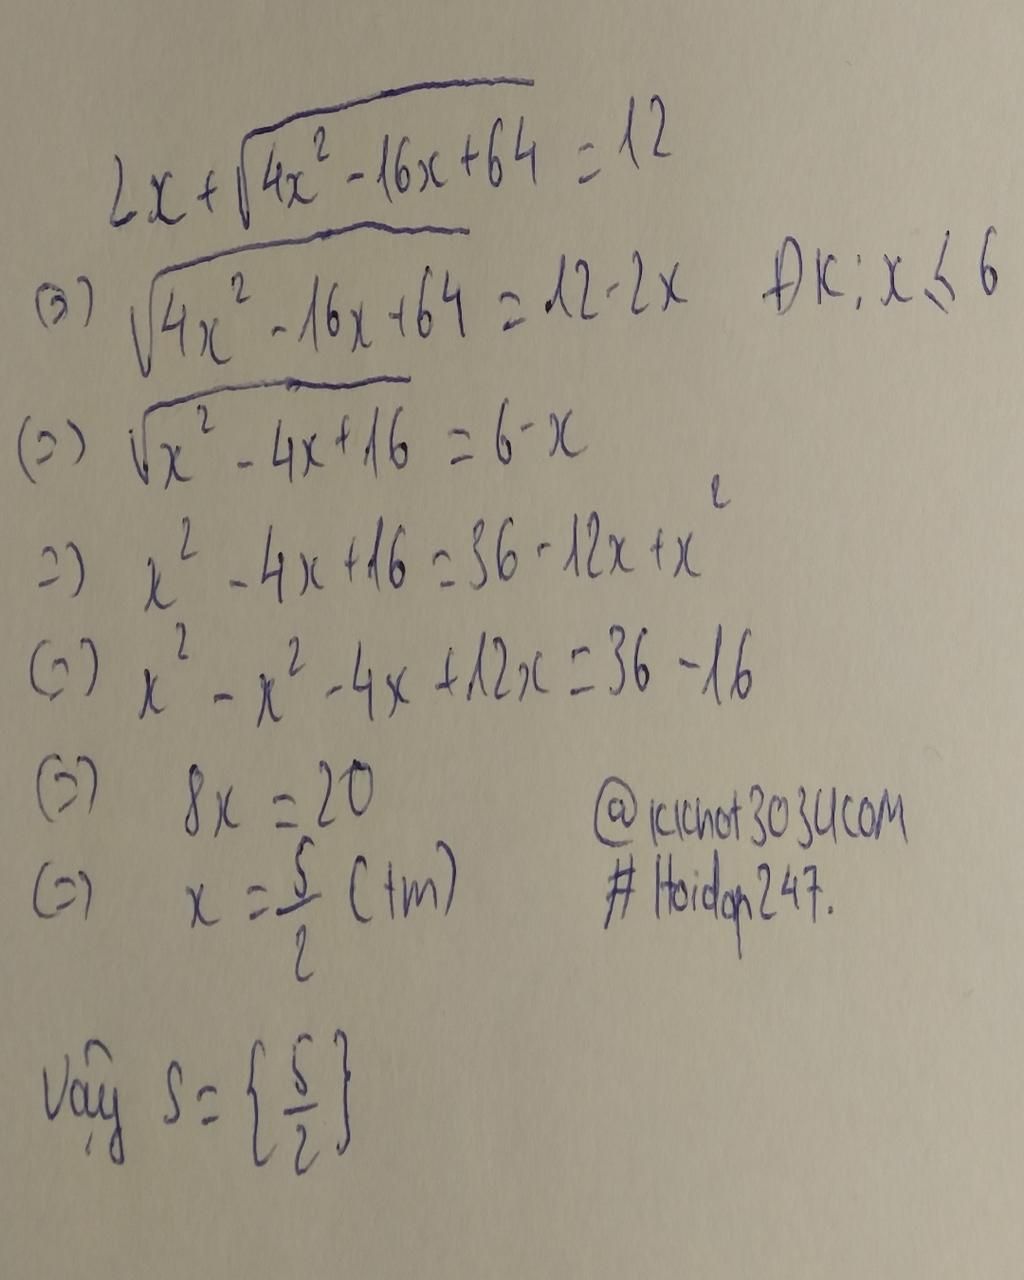 2x + √(4x² - 16x + 64) = 12
(=) √(4x² - 16x + 64) = 12 - 2x ĐK: x ≤ 6
(=) √(x² - 4x + 16) = 6 - x
=) x² - 4x + 16 = 36 - 12x + x²
(=) x² - x² - 4x + 12x = 36 - 16
(=) 8x = 20
(=) x = 5/2 (tm)
@kkhot3034com
#Hoidap247.
Vậy S = {5/2}